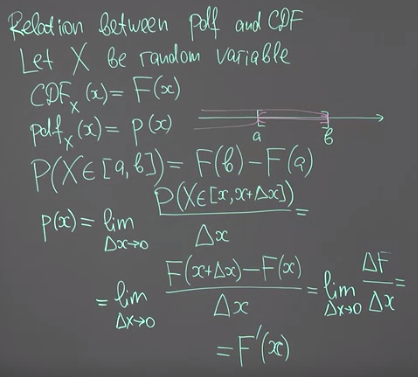 Relation between pdf and CDF
Let X be random variable
CDF_X(x) = F(x)
pdf_X(x) = p(x)
a b
P(X∈[a,b]) = F(b) – F(a)
p(x) = lim_{Δx→0} P(X∈[x,x+Δx]) / Δx =
= lim_{Δx→0} (F(x+Δx) – F(x)) / Δx = lim_{Δx→0} ΔF / Δx =
= F'(x)